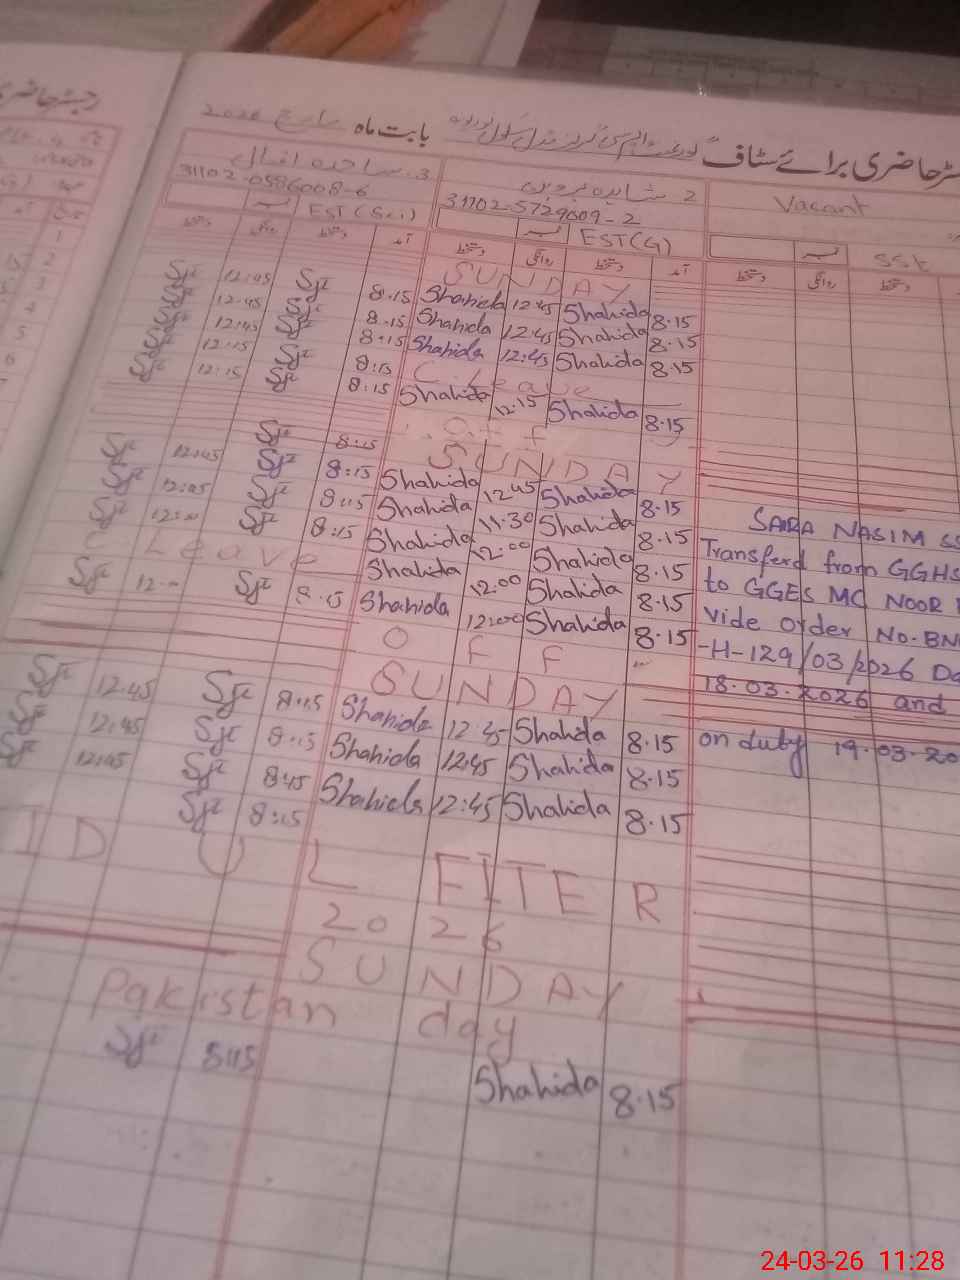 رجسٹر حاضری
سٹر حاضری برائے سٹاف گورنمنٹ ایم سی گرلز مڈل سکول بابت ماہ مارچ 2026
3. ساجدہ اقبال
31102-0586008-6
EST (Sci)
2 شاہدہ پروین
31102-5729609-2
EST(G)
Vacant
SSt
دستخط روانگی دستخط آمد دستخط روانگی دستخط آمد دستخط روانگی دستخط
SUNDAY
12:45 8.15 Shahida 12:45 Shahida 8.15
12:45 8.15 Shahida 12:45 Shahida 8.15
12:45 8:15 Shahida 12:45 Shahida 8.15
12:15 8:15 C. Leave
12:15 8:15 Shahida 12:15 Shahida 8.15
Off
8:15 SUNDAY
12:45 8:15 Shahida 12:45 Shahida 8.15
12:45 8:15 Shahida 11:30 Shahida 8.15
12:00 8:15 Shahida 12:00 Shahida 8.15
C Leave Shahida 12:00 Shahida 8.15
12:00 8:15 Shahida 12:00 Shahida 8.15
OFF
SUNDAY
12:45 8:15 Shahida 12:45 Shahida 8.15
12:45 8:15 Shahida 12:45 Shahida 8.15
12:45 8:45 Shahida 12:45 Shahida 8.15
8:15
ID UL FITER
2026
SUNDAY
Pakistan day
8:15 Shahida 8.15
SAIRA NASIM SS
Transferd from GGHS
to GGES MC NOOR
Vide order No.BN
-H-129/03/2026 Da
18.03.2026 and
on duty 19.03.20
1
2
3
4
5
6
24-03-26 11:28